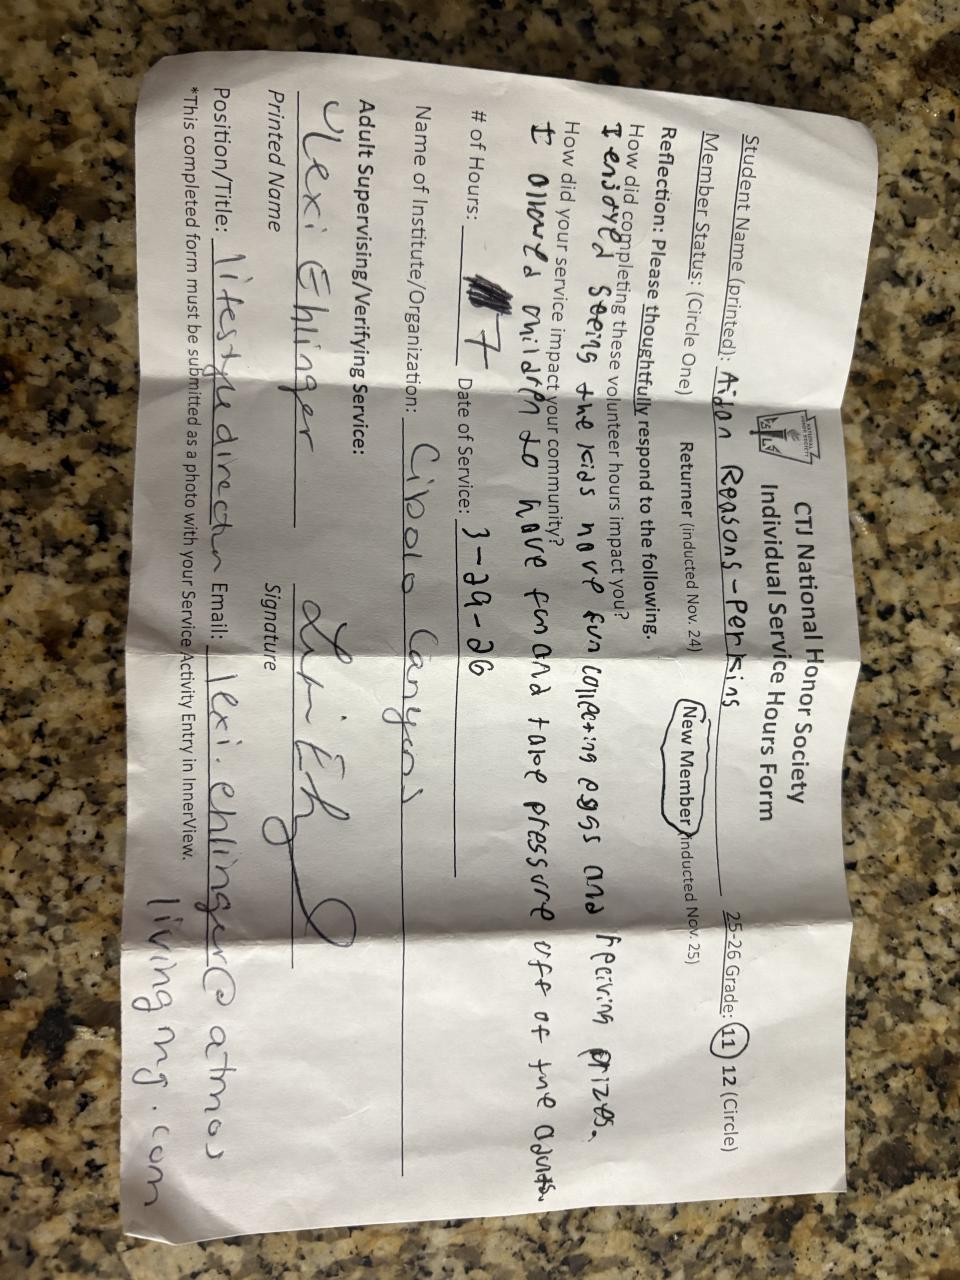 CTJ National Honor Society
Individual Service Hours Form
Student Name (printed): Aidan Reasons-Perkins 25-26 Grade: 11 12 (Circle)
Member Status: (Circle One) Returner (inducted Nov. 24) New Member (inducted Nov. 25)
Reflection: Please thoughtfully respond to the following.
How did completing these volunteer hours impact you?
I enjoyed seeing the kids have fun collecting eggs and reciving prizes.
How did your service impact your community?
I allowed children to have fun and take pressure off of the adults.
# of Hours: 7 Date of Service: 3-29-26
Name of Institute/Organization: Cibolo Canyons
Adult Supervising/Verifying Service:
Lexi Ehlinger
Printed Name Signature
Position/Title: lifestyle director Email: lexi.ehlinger@atmos
livingmg.com
*This completed form must be submitted as a photo with your Service Activity Entry in InnerView.